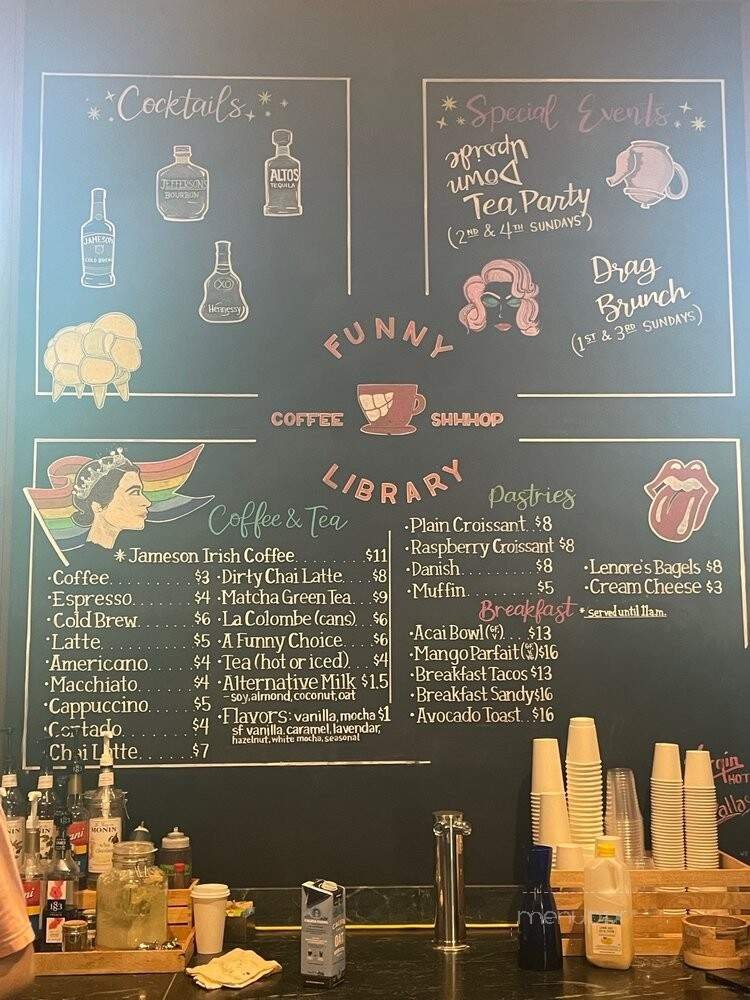 Cocktails
JEFFERSON'S
BOURBON
ALTOS
TEQUILA
JAMESON
COLD BREW
XO
Hennessy
Special Events
Upside
Down
Tea Party
(2ND & 4TH SUNDAYS)
Drag
Brunch
(1ST & 3RD SUNDAYS)
FUNNY
COFFEE SHHHOP
LIBRARY
Coffee & Tea
*Jameson Irish Coffee.......$11
·Coffee..........$3
·Espresso.......$4
·Cold Brew......$6
·Latte...........$5
·Americano.....$4
·Macchiato.....$4
·Cappuccino....$5
·Cortado........$4
·Chai Latte.....$7
·Dirty Chai Latte....$8
·Matcha Green Tea...$9
·La Colombe (cans)..$6
·A Funny Choice....$6
·Tea (hot or iced)...$4
·Alternative Milk $1.5
-soy, almond, coconut, oat
·Flavors: vanilla, mocha $1
sf vanilla, caramel, lavendar,
hazelnut, white mocha, seasonal
Pastries
·Plain Croissant..$8
·Raspberry Croissant $8
·Danish..........$8
·Muffin..........$5
·Lenore's Bagels $8
·Cream Cheese $3
Breakfast *served until 11a.m.
·Acai Bowl (gf)...$13
·Mango Parfait $16
·Breakfast Tacos $13
·Breakfast Sandy $16
·Avocado Toast..$16
HOT
MONIN
183
OAT
menu